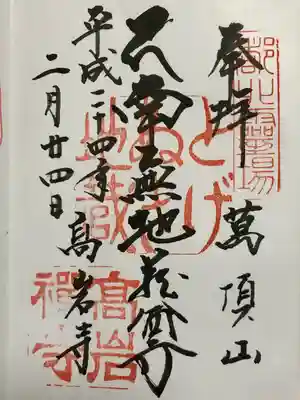 奉拝
萬頂山
南無地蔵尊
高岩寺
平成二十四年
二月廿四日
とげ
ぬき
地蔵
高岩
禪寺